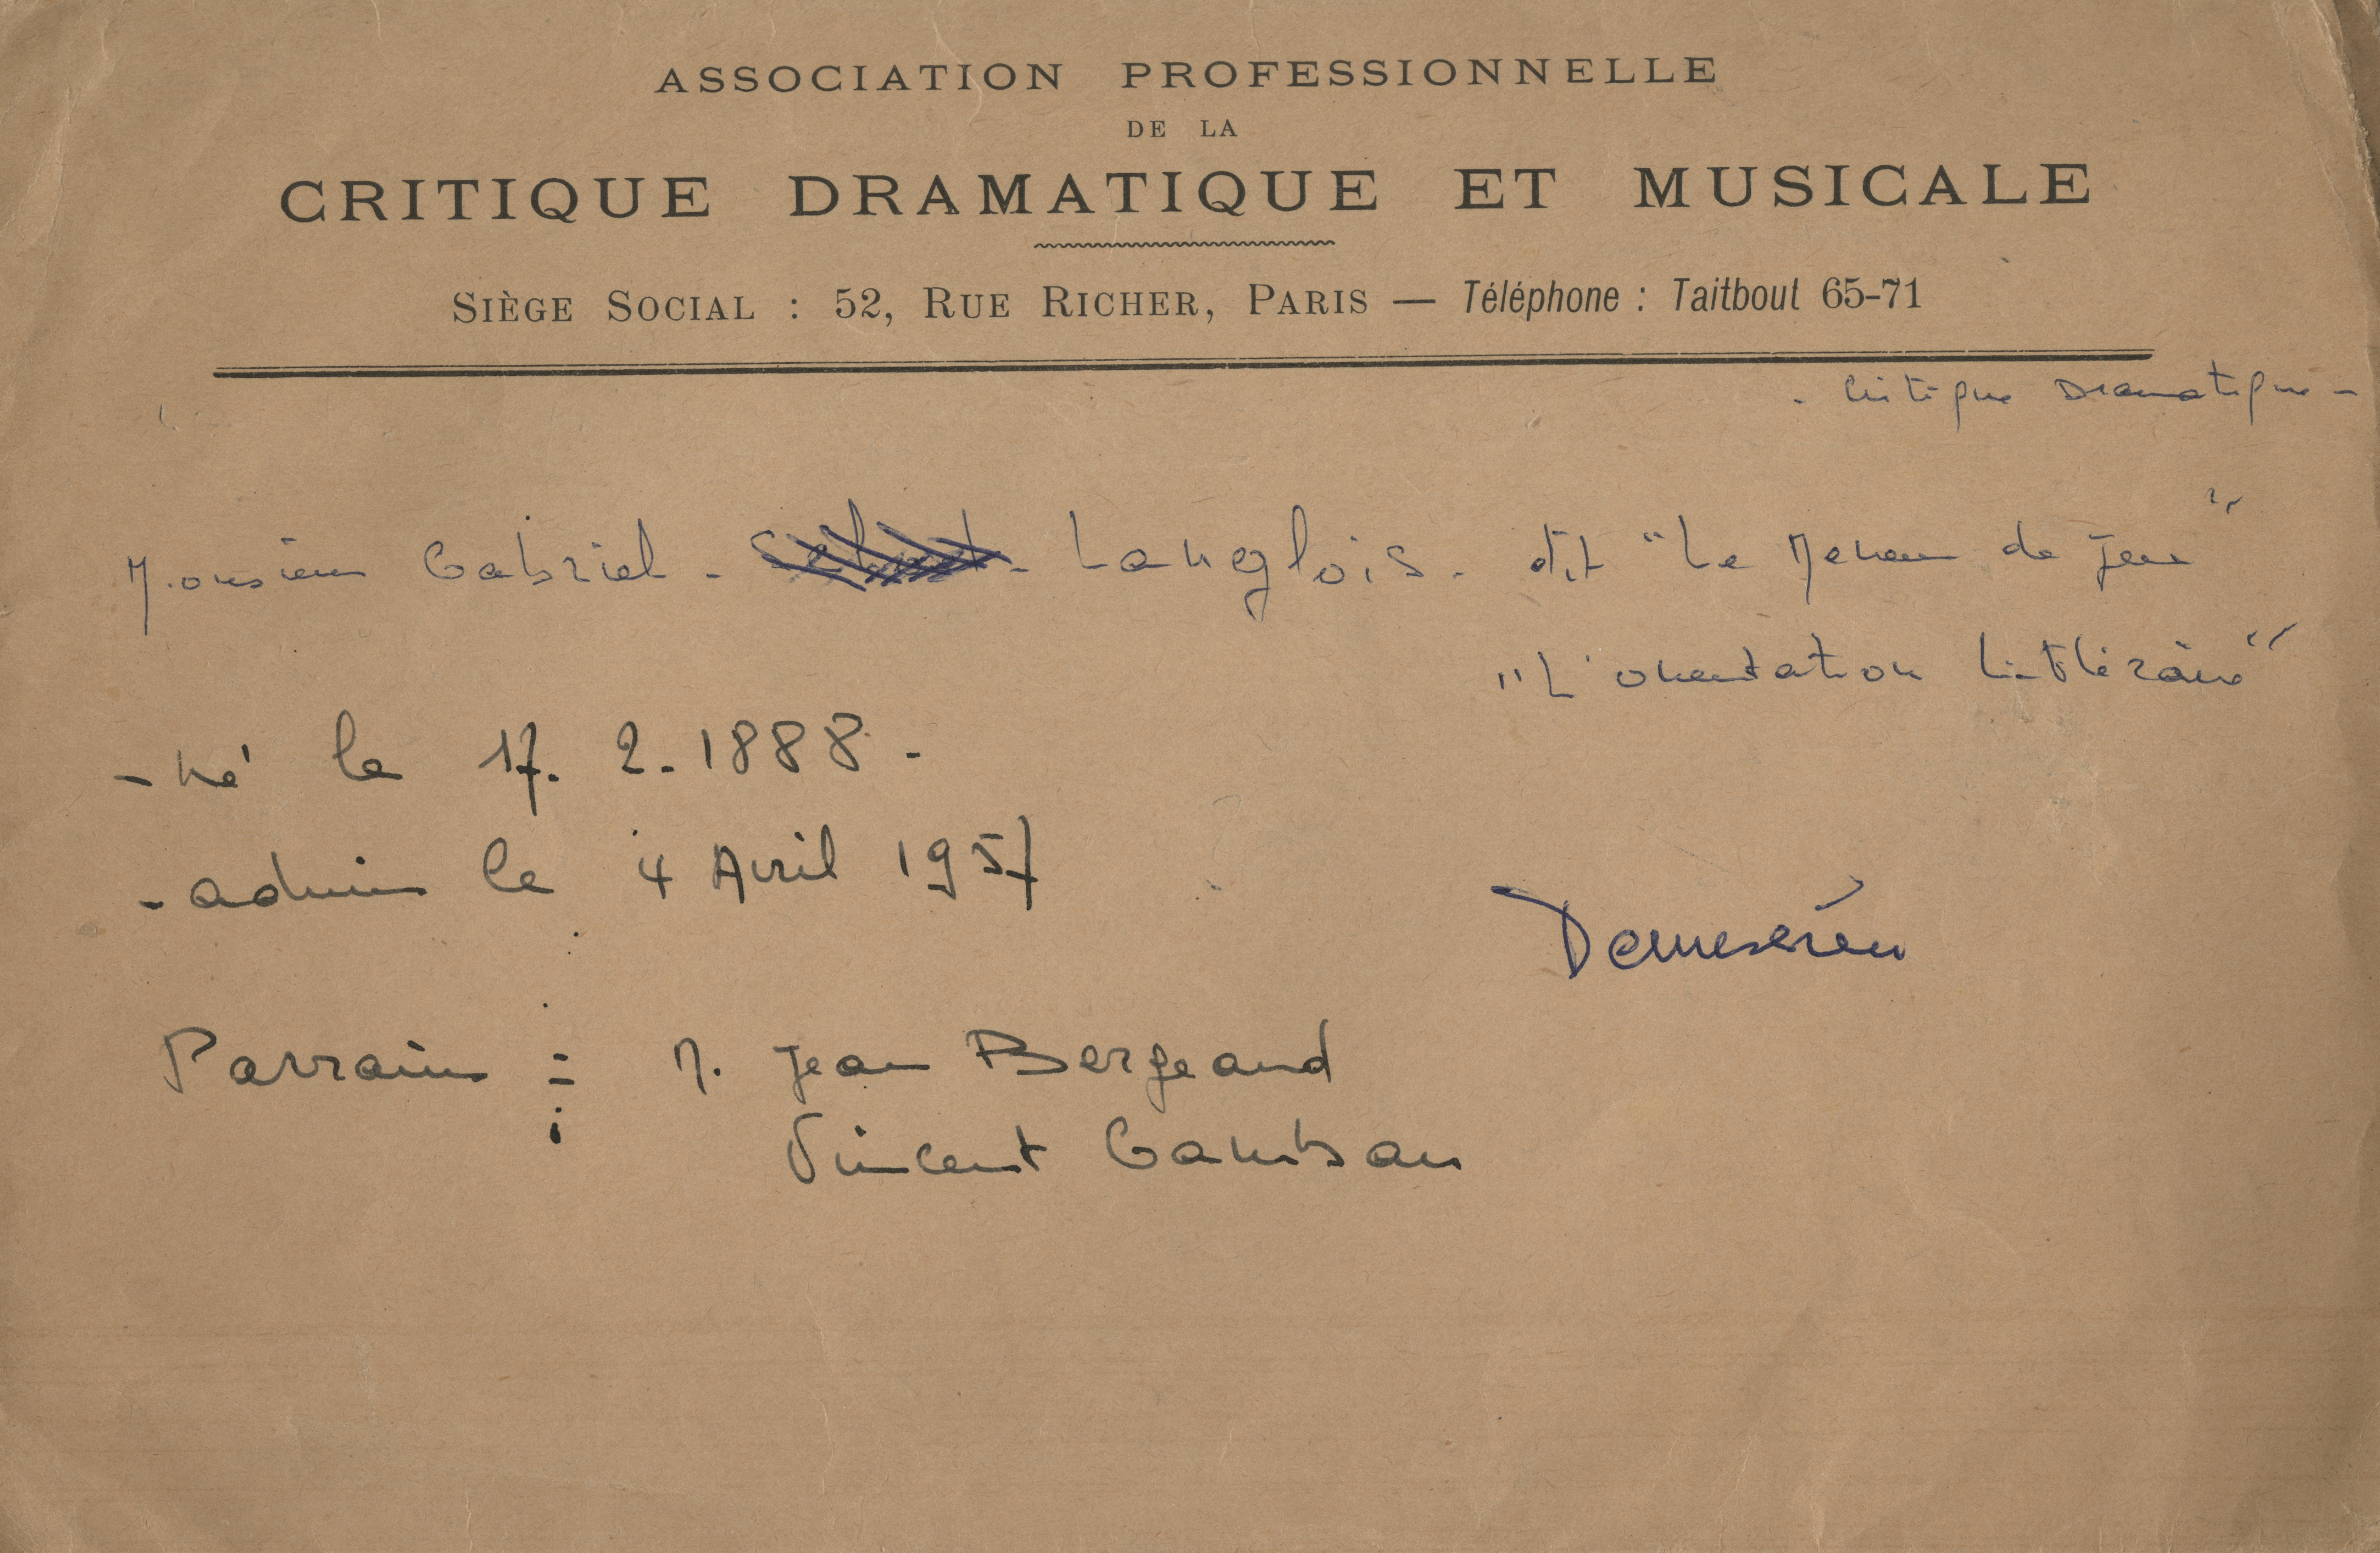 ASSOCIATION PROFESSIONNELLE
DE LA
CRITIQUE DRAMATIQUE ET MUSICALE
SIÈGE SOCIAL : 52, RUE RICHER, PARIS — Téléphone : Taitbout 65-71
- Critique Dramatique -
Monsieur Gabriel - - Langlois - dit "Le Meneur de Jeu"
"L'orientation littéraire"
- né le 17. 2. 1888 -
- admis le 4 Avril 1957
Parrains : M. Jean Bergeaud
Vincent Gambau